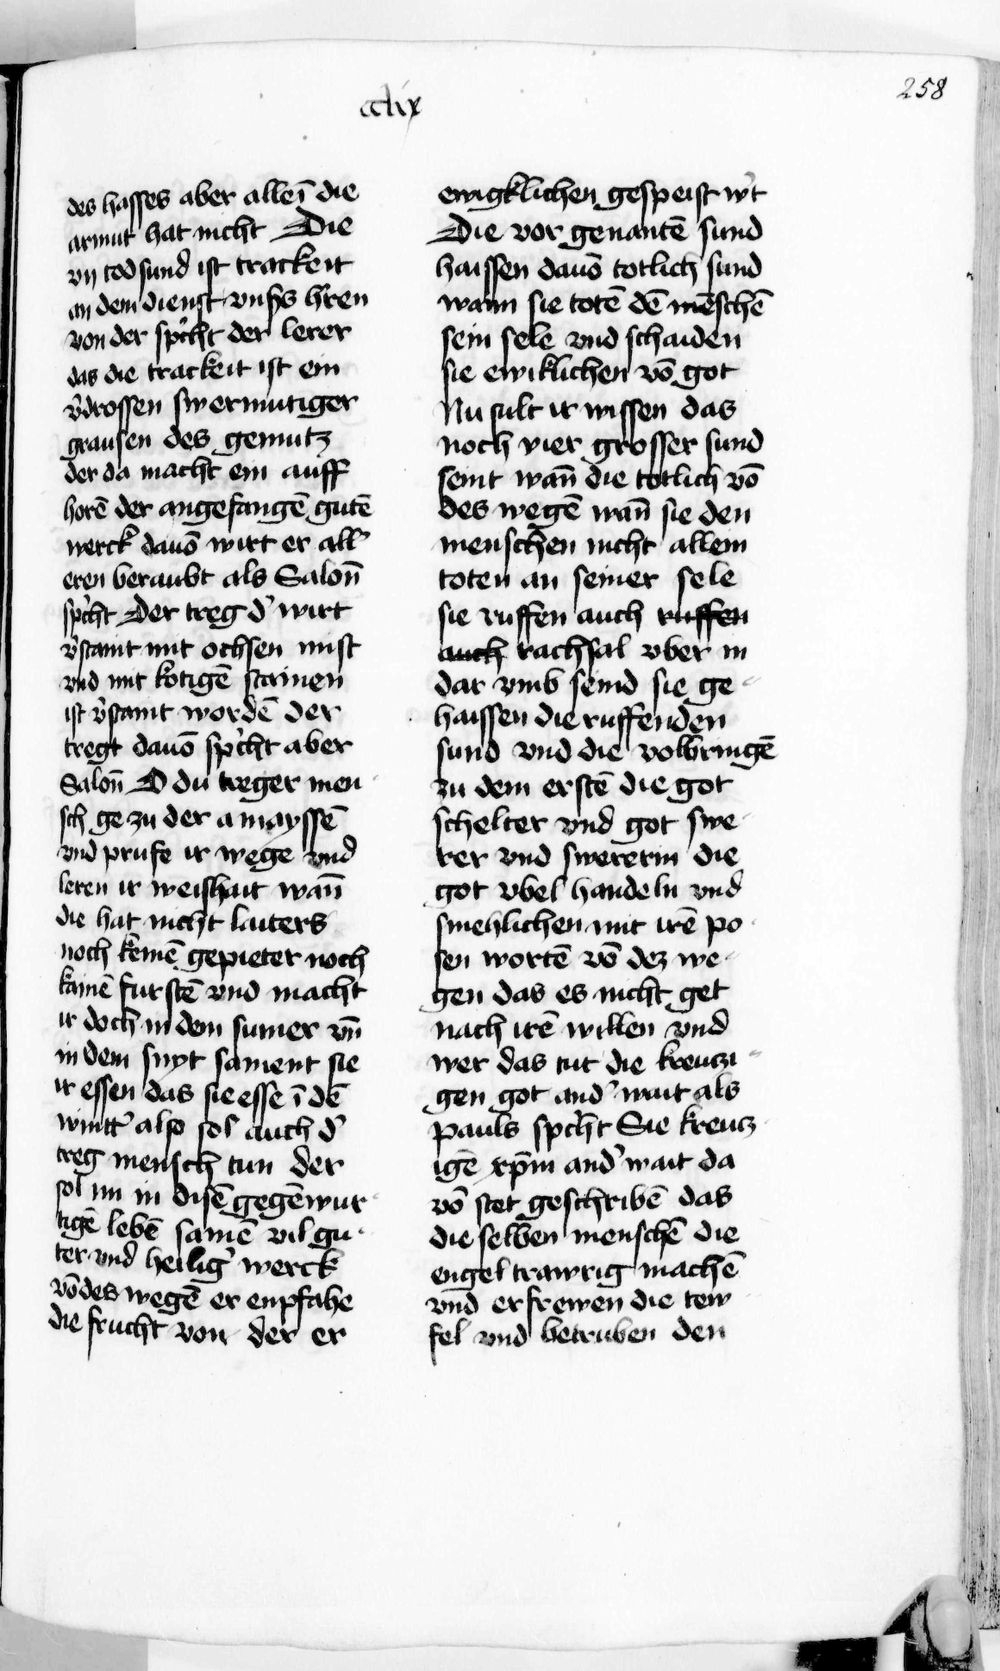 258
cclix
des hasses aber alleī die
armut hat nicht Die
vij tod sund ist trackeit
an dem dienst vnsˢs hˢren
von der spˢcht der lerer
das die trackeit ist ein
vˢdrossen swermutiger
grausen des gemutz
der da macht ein auff
horē der angefangē gutē
werck dauō wirt er allˢ
eren beraubt als Salon̄
spˢcht Der treg dˢ wirt
vˢstaint mit ochsen mist
vnd mit kotigē stainen
ist vˢstaint wordē der
tregt dauō spˢcht aber
Salon̄ O du treger men
sch ge zu der amayssē
vnd prufe ir wege vnd
leren ir weishait wan̄
die hat nicht laiters
noch keinē gepieter noch
kainē furstē vnd macht
ir doch in dem sumer vn̄
in dem snyt sament sie
ir essen das sie esse ī dē
wintˢ also sol auch dˢ
treg mensch tun der
sol im in disē gegēwur
tigē lebē samē vil gu
ter vnd heiligˢ werck
vō des wegē er enpfahe
die frucht von der er
ewigklichen gespeist wˢt
Die vor genantē sund
haissen dauō totlich sund
wann sie totē dē mēschē
sein sele vnd schaiden
sie ewiklichen vō got
Nu sult ir wissen das
noch vier grosser sund
seint wan̄ die totlich vō
des wegē wan̄ sie den
menschen nicht allein
toten an seiner sele
sie ruffen auch ruffen
auch rachsal vber in
dar vmb seind sie ge
haissen die ruffenden
sund vnd die volbringē
zu dem erstē die got
schelter vnd got swe
rer vnd swererin die
got vbel handeln vnd
smehlichen mit irē po
sen wortē vō dez we
gen das es nicht get
nach irē willen vnd
wer das tut die kreutzi
gen got andˢ wait als
pauls spˢcht Sie kreutz
igē xp̄m andˢ wait da
vō stet geschribē das
die selben menschē die
engel trawrig machē
vnd erfrewen die tew
fel vnd betruben den